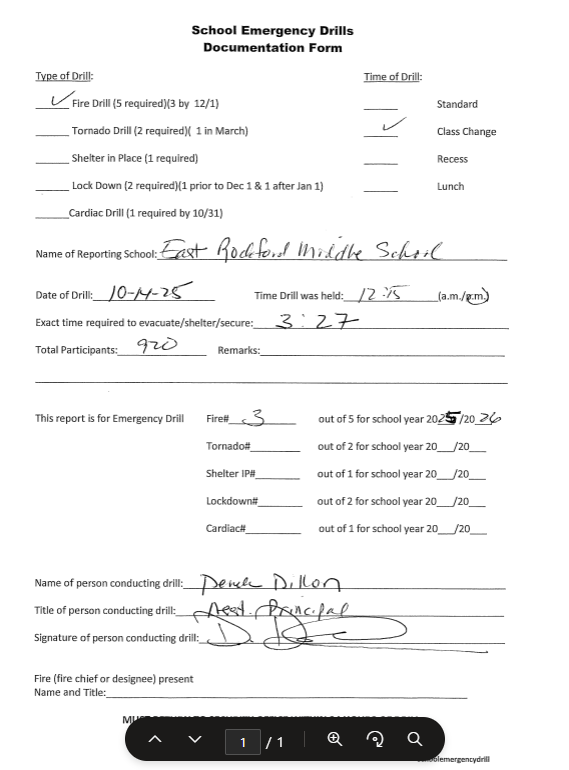 School Emergency Drills
Documentation Form
Type of Drill: Time of Drill:
✓ Fire Drill (5 required)(3 by 12/1) ____ Standard
____ Tornado Drill (2 required)( 1 in March) ✓ Class Change
____ Shelter in Place (1 required) ____ Recess
____ Lock Down (2 required)(1 prior to Dec 1 & 1 after Jan 1) ____ Lunch
____Cardiac Drill (1 required by 10/31)
Name of Reporting School: East Rockford Middle School
Date of Drill: 10-14-25 Time Drill was held: 12:15 (a.m./p.m.)
Exact time required to evacuate/shelter/secure: 3:27
Total Participants: 920 Remarks:
This report is for Emergency Drill Fire# 3 out of 5 for school year 2025/2026
Tornado#____ out of 2 for school year 20__/20__
Shelter IP#____ out of 1 for school year 20__/20__
Lockdown#____ out of 2 for school year 20__/20__
Cardiac#____ out of 1 for school year 20__/20__
Name of person conducting drill: Derek Dillon
Title of person conducting drill: Asst. Principal
Signature of person conducting drill:
Fire (fire chief or designee) present
Name and Title:
1 / 1